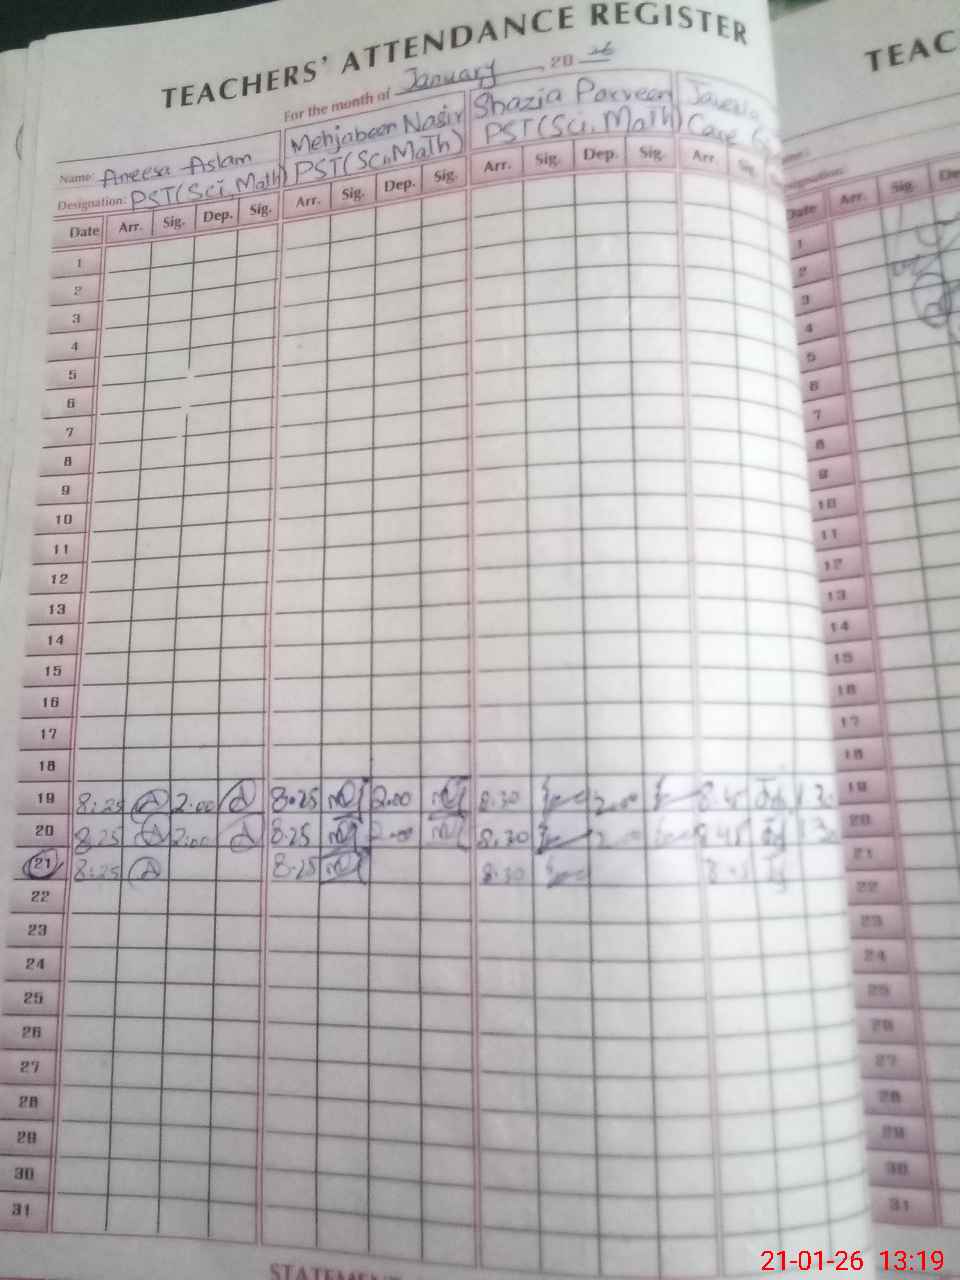 TEACHERS' ATTENDANCE REGISTER
For the month of January 20 26
Name: Aneesa Aslam Mehjabeen Nasir Shazia Parveen
Designation: PST(Sci, Math) PST(Sci, Math) PST(Sci, Math) Care
Date Arr. Sig. Dep. Sig. Arr. Sig. Dep. Sig. Arr. Sig. Dep. Sig. Arr. Sig.
1
2
3
4
5
6
7
8
9
10
11
12
13
14
15
16
17
18
19 8:25 2:00 8.25 2.00 8.30 2.00 8.45 1.30
20 8:25 2:00 8.25 2.00 8.30 8.45 1.30
21 8:25 8.25 8.30
22
23
24
25
26
27
28
29
30
31
STATEMENT
TEAC
Date Arr. Sig.
1
2
3
4
5
6
7
8
9
10
11
12
13
14
15
16
17
18
19
20
21
22
23
24
25
26
27
28
29
30
31
21-01-26 13:19